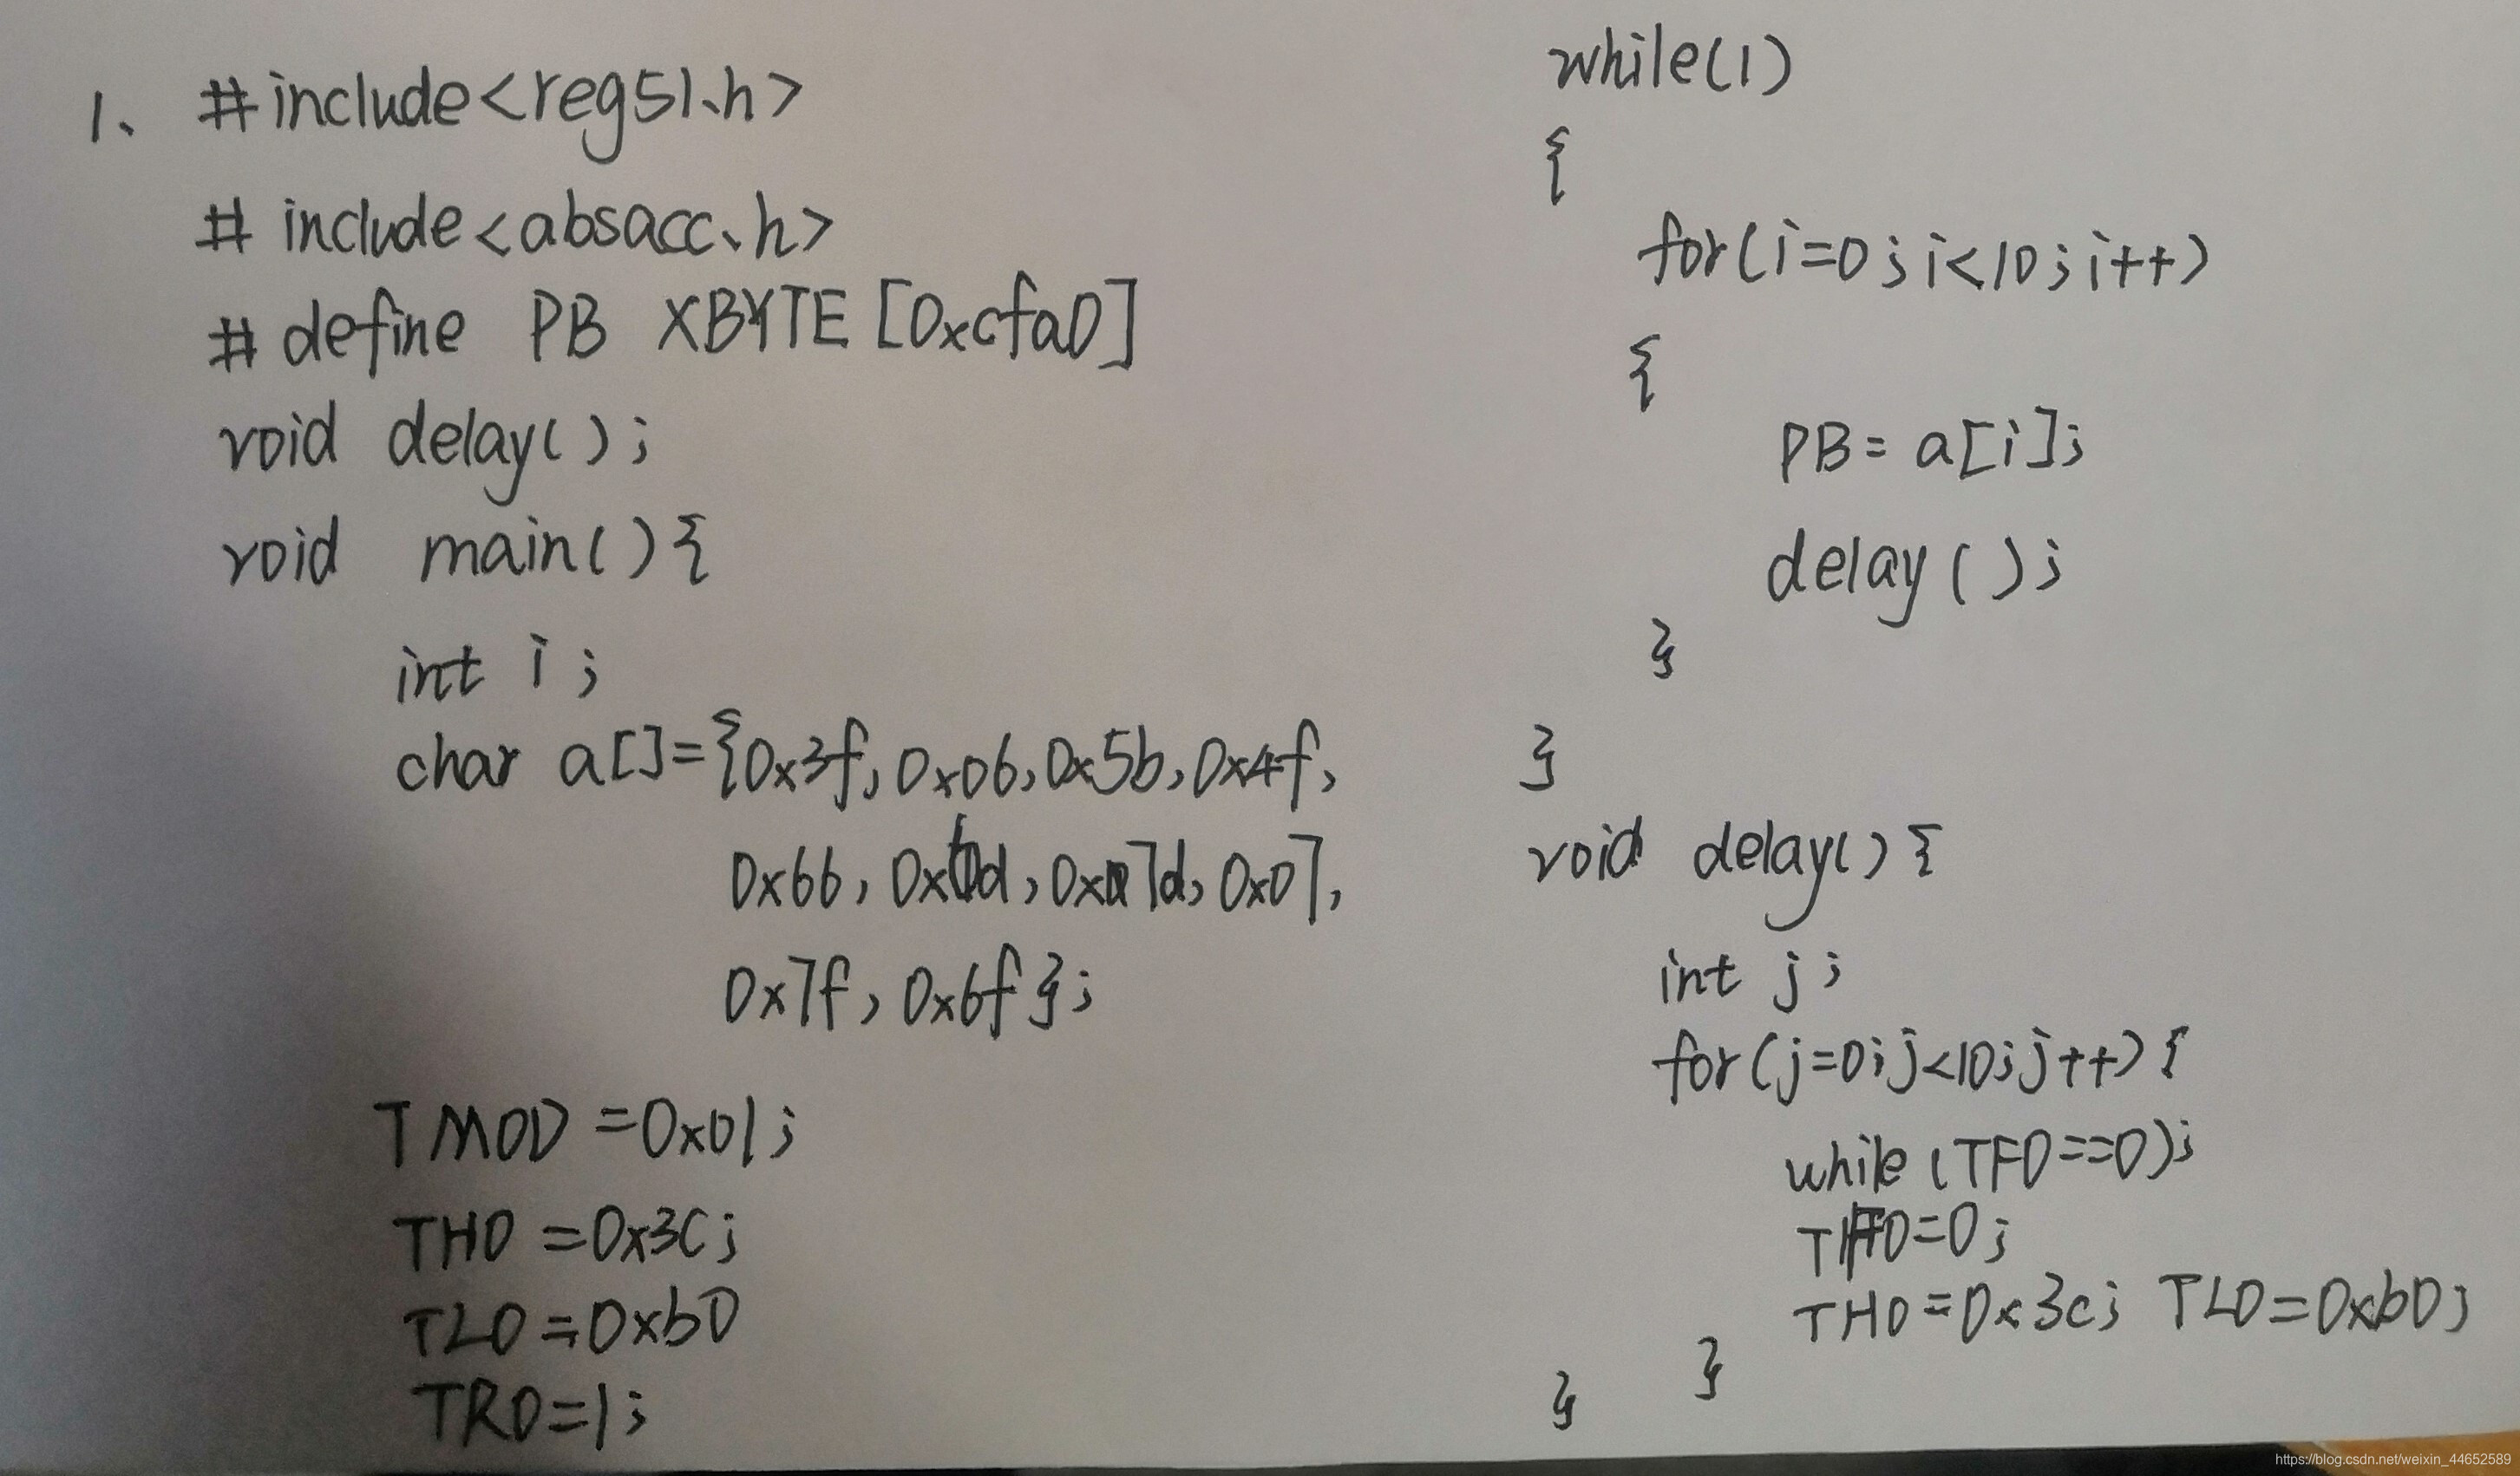 1、 #include<reg51、h>
# include<absacc、h>
# define PB XBYTE [0xcfa0]
void delay();
void main(){
int i;
char a[]={0x3f, 0x06, 0x5b, 0x4f,
0x66, 0x6d, 0x7d, 0x07,
0x7f, 0x6f};
TMOD =0x01;
TH0 =0x3C;
TL0 =0xb0
TR0=1;
while(1)
{
for(i=0;i<10;i++)
{
PB= a[i];
delay();
}
}
void delay(){
int j;
for(j=0;j<10;j++){
while(TF0==0);
TF0=0;
TH0=0x3c; TL0=0xb0;
}
}
https://blog.csdn.net/weixin_44652589